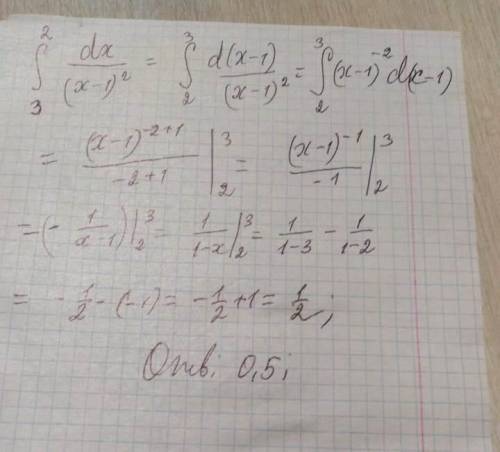 ∫₃² dx/(x-1)² = ∫₂³ d(x-1)/(x-1)² = ∫₂³ (x-1)⁻² d(x-1)
= (x-1)⁻²⁺¹/(-2+1) |₂³ = (x-1)⁻¹/(-1) |₂³
= (- 1/(x-1)) |₂³ = 1/(1-x) |₂³ = 1/(1-3) - 1/(1-2)
= - 1/2 - (-1) = - 1/2 + 1 = 1/2;
Отв: 0,5;